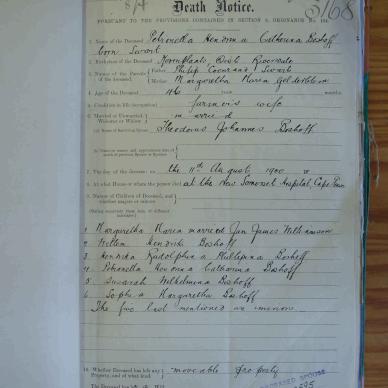 Death Notice.
PURSUANT TO THE PROVISIONS CONTAINED IN SECTION
1. Name of the Deceased Petronella Hendrina Catharina Boshoff
born Swart
2. Birthplace of the Deceased
3. Names of the Parents of the Deceased Father Philip Coenraad Swart
Mother Margaretha Maria Geldenblom
4. Age of the Deceased 46 years months
5. Condition in life (occupation) farmer's wife
6. Married or Unmarried, Widower or Widow married
(a) Name of Surviving Spouse Theodorus Johannes Boshoff
7. The day of the decease on the 11th August 1900
8. At what House or where the person died at the New Somerset Hospital, Cape Town
9. Names of Children of Deceased, and whether majors or minors
1 Margaretha Maria married Jan James Williamson
2 Willem Hendrik Boshoff
3 Hendrika Rudolphina Philippina Boshoff
4 Petronella Hendrina Catharina Boshoff
5 Susarah Wilhelmina Boshoff
6 Sophia Margaretha Boshoff
The two last mentioned are minors
10. Whether Deceased has left any Property, and of what kind moveable property
DECEASED SPOUSE